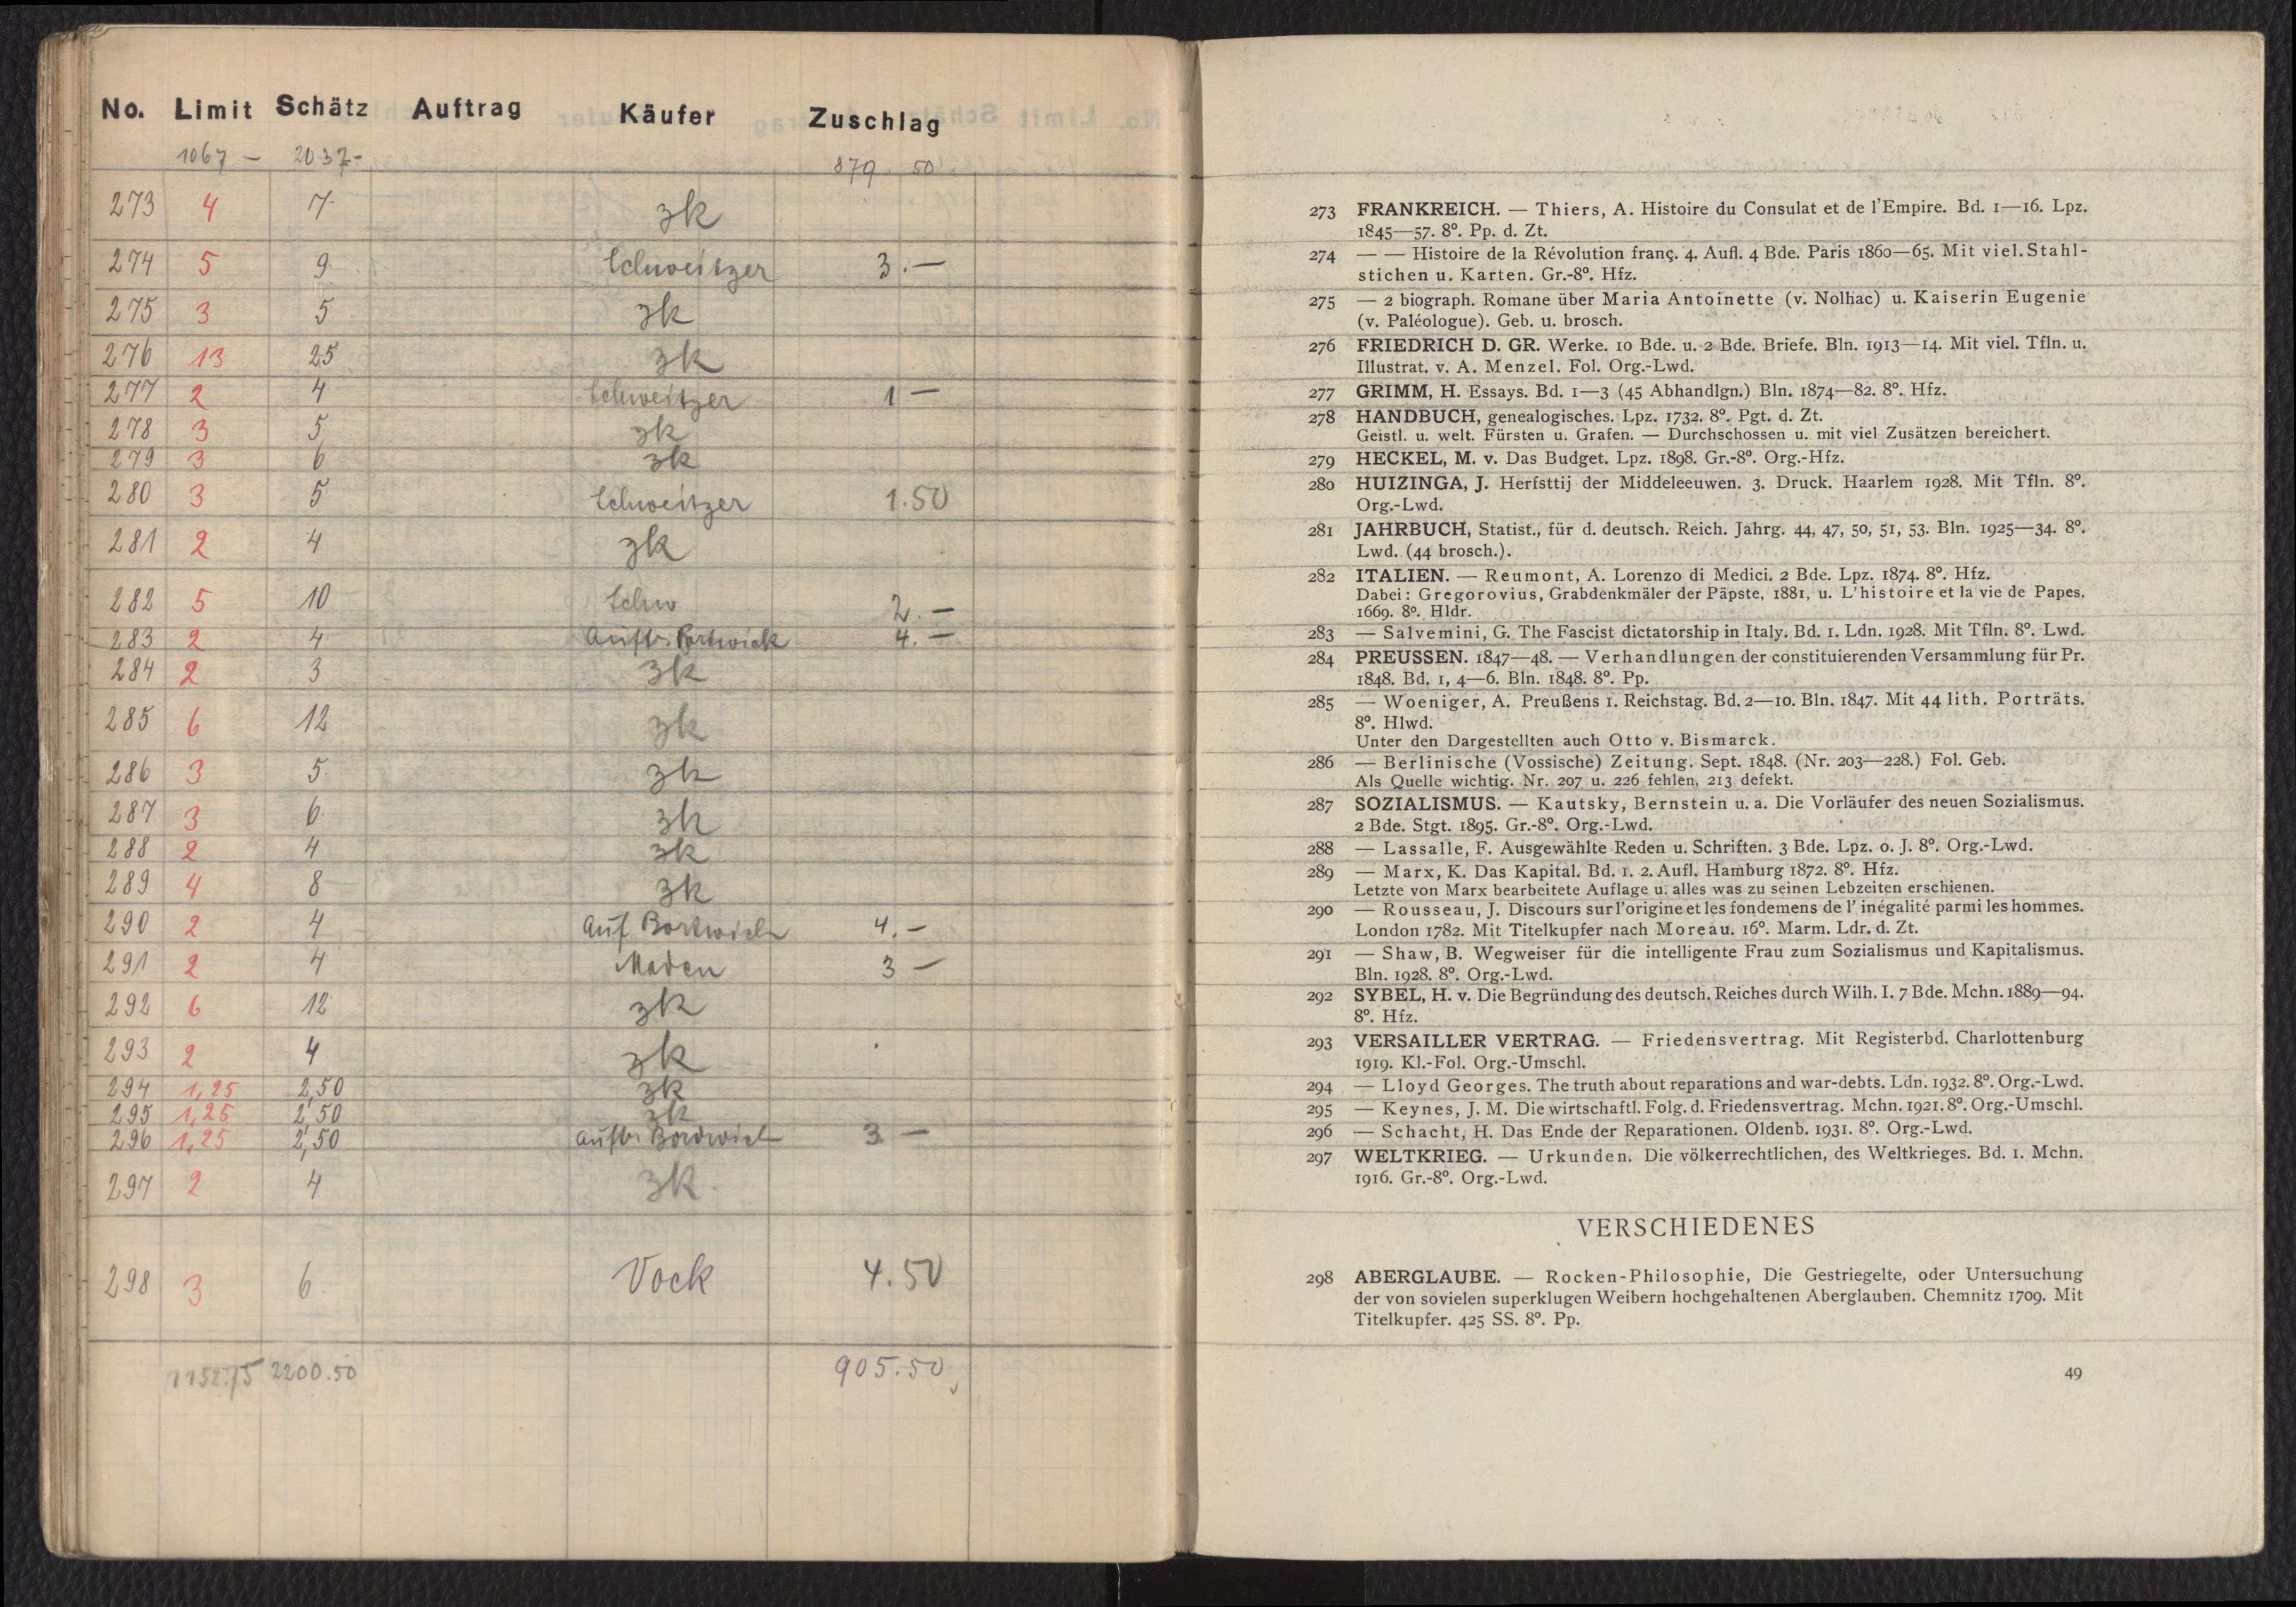 No. Limit Schätz Auftrag Käufer Zuschlag
1067 — 2037- 879. 50
273 4 7 zk
274 5 9 Schweitzer 3.—
275 3 5 zk
276 13 25 zk
277 2 4 Schweitzer 1 —
278 3 5 zk
279 3 6 zk
280 3 5 Schweitzer 1.50
281 2 4 zk
282 5 10 Schw 2.—
283 2 4 4.—
284 2 3 zk
285 6 12 zk
286 3 5 zk
287 3 6 zk
288 2 4 zk
289 4 8 zk
290 2 4 Auf 4.—
291 2 4 Maden 3 —
292 6 12 zk
293 2 4 zk
294 1,25 2,50 zk
295 1,25 2,50 zk
296 1,25 2,50 3 —
297 2 4 zk.
298 3 6 Vock 4.50
1152.75 2200.50 905.50
273 FRANKREICH. — Thiers, A. Histoire du Consulat et de l'Empire. Bd. 1—16. Lpz.
1845—57. 8º. Pp. d. Zt.
274 — — Histoire de la Révolution franç. 4. Aufl. 4 Bde. Paris 1860—65. Mit viel. Stahl-
stichen u. Karten. Gr.-8º. Hfz.
275 — 2 biograph. Romane über Maria Antoinette (v. Nolhac) u. Kaiserin Eugenie
(v. Paléologue). Geb. u. brosch.
276 FRIEDRICH D. GR. Werke. 10 Bde. u. 2 Bde. Briefe. Bln. 1913—14. Mit viel. Tfln. u.
Illustrat. v. A. Menzel. Fol. Org.-Lwd.
277 GRIMM, H. Essays. Bd. 1—3 (45 Abhandlgn.) Bln. 1874—82. 8º. Hfz.
278 HANDBUCH, genealogisches. Lpz. 1732. 8º. Pgt. d. Zt.
Geistl. u. welt. Fürsten u. Grafen. — Durchschossen u. mit viel Zusätzen bereichert.
279 HECKEL, M. v. Das Budget. Lpz. 1898. Gr.-8º. Org.-Hfz.
280 HUIZINGA, J. Herfsttij der Middeleeuwen. 3. Druck. Haarlem 1928. Mit Tfln. 8º.
Org.-Lwd.
281 JAHRBUCH, Statist., für d. deutsch. Reich. Jahrg. 44, 47, 50, 51, 53. Bln. 1925—34. 8º.
Lwd. (44 brosch.).
282 ITALIEN. — Reumont, A. Lorenzo di Medici. 2 Bde. Lpz. 1874. 8º. Hfz.
Dabei: Gregorovius, Grabdenkmäler der Päpste, 1881, u. L'histoire et la vie de Papes.
1669. 8º. Hldr.
283 — Salvemini, G. The Fascist dictatorship in Italy. Bd. 1. Ldn. 1928. Mit Tfln. 8º. Lwd.
284 PREUSSEN. 1847—48. — Verhandlungen der constituierenden Versammlung für Pr.
1848. Bd. 1, 4—6. Bln. 1848. 8º. Pp.
285 — Woeniger, A. Preußens 1. Reichstag. Bd. 2—10. Bln. 1847. Mit 44 lith. Porträts.
8º. Hlwd.
Unter den Dargestellten auch Otto v. Bismarck.
286 — Berlinische (Vossische) Zeitung. Sept. 1848. (Nr. 203—228.) Fol. Geb.
Als Quelle wichtig. Nr. 207 u. 226 fehlen, 213 defekt.
287 SOZIALISMUS. — Kautsky, Bernstein u. a. Die Vorläufer des neuen Sozialismus.
2 Bde. Stgt. 1895. Gr.-8º. Org.-Lwd.
288 — Lassalle, F. Ausgewählte Reden u. Schriften. 3 Bde. Lpz. o. J. 8º. Org.-Lwd.
289 — Marx, K. Das Kapital. Bd. 1. 2. Aufl. Hamburg 1872. 8º. Hfz.
Letzte von Marx bearbeitete Auflage u. alles was zu seinen Lebzeiten erschienen.
290 — Rousseau, J. Discours sur l'origine et les fondemens de l' inégalité parmi les hommes.
London 1782. Mit Titelkupfer nach Moreau. 16º. Marm. Ldr. d. Zt.
291 — Shaw, B. Wegweiser für die intelligente Frau zum Sozialismus und Kapitalismus.
Bln. 1928. 8º. Org.-Lwd.
292 SYBEL, H. v. Die Begründung des deutsch. Reiches durch Wilh. I. 7 Bde. Mchn. 1889—94.
8º. Hfz.
293 VERSAILLER VERTRAG. — Friedensvertrag. Mit Registerbd. Charlottenburg
1919. Kl.-Fol. Org.-Umschl.
294 — Lloyd Georges. The truth about reparations and war-debts. Ldn. 1932. 8º. Org.-Lwd.
295 — Keynes, J. M. Die wirtschaftl. Folg. d. Friedensvertrag. Mchn. 1921. 8º. Org.-Umschl.
296 — Schacht, H. Das Ende der Reparationen. Oldenb. 1931. 8º. Org.-Lwd.
297 WELTKRIEG. — Urkunden. Die völkerrechtlichen, des Weltkrieges. Bd. 1. Mchn.
1916. Gr.-8º. Org.-Lwd.
VERSCHIEDENES
298 ABERGLAUBE. — Rocken-Philosophie, Die Gestriegelte, oder Untersuchung
der von sovielen superklugen Weibern hochgehaltenen Aberglauben. Chemnitz 1709. Mit
Titelkupfer. 425 SS. 8º. Pp.
49